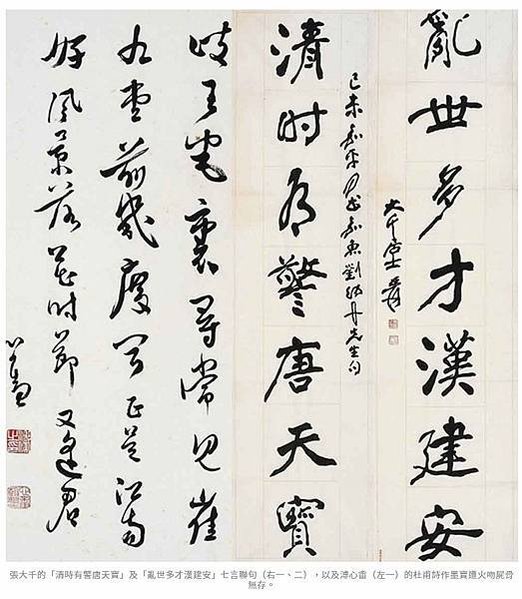 亂世多才漢建安
大千居士爰
己未 劉 丹先生句
清时有警唐天寶
岐王宅裏尋常見崔
九堂前幾度聞正是江南
好風景落花時節又逢君
心畬
張大千的「清時有警唐天寶」及「亂世多才漢建安」七言聯句（右一、二），以及溥心畬（左一）的杜甫詩作墨寶遭火吻屍骨
無存。